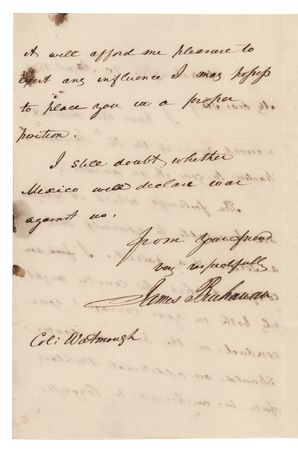 it will afford me pleasure to
exert any influence I may possess
to place you in a proper
position.
I still doubt whether
Mexico will declare war
against us.
from your friend
very respectfully
James Buchanan
Col: Watmough